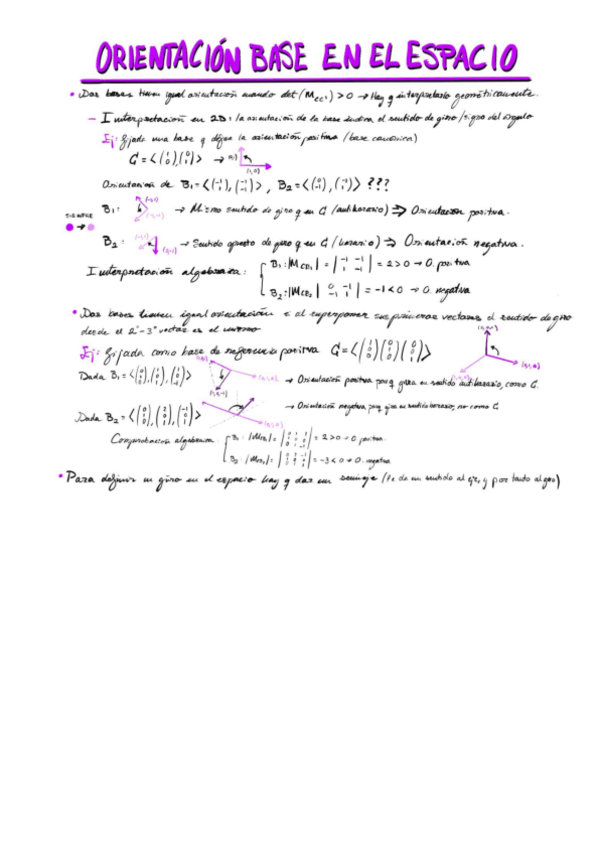 ORIENTACIÓN BASE EN EL ESPACIO
• Dos bases tienen igual orientación cuando det (M_CC') > 0 → Hay q interpretarlo geométricamente.
– Interpretación en 2D: la orientación de la base indica el sentido de giro / signo del ángulo
Ej: fijada una base q define la orientación positiva (base canónica)
C = <(1 0), (0 1)> → (0,1) (1,0)
Orientación de B₁ = , B₂ = ???
B₁: → Mismo sentido de giro q en C (antihorario) ⇒ Orientación positiva.
SIEMPRE
B₂: → Sentido opuesto de giro q en C (horario) ⇒ Orientación negativa.
Interpretación algebraica: B₁: |M_CB₁| = |-1 -1 1 -1| = 2 > 0 → O. positiva
B₂: |M_CB₂| = -1 < 0 → O. negativa
• Dos bases tienen igual orientación si al superponer sus primeros vectores el sentido de giro
desde el 2º-3º vector es el mismo
Ej: Fijada como base de referencia positiva C = <(1 0 0) (0 1 0) (0 0 1)>
Dada B₁ = → Orientación positiva porq gira en sentido antihorario, como C.
Dada B₂ = → Orientación negativa porq gira en sentido horario, no como C
Comprobación algebraica: B₁: |M_CB₁| = = 2 > 0 → O positiva
B₂: |M_CB₂| = = -3 < 0 → O. negativa
• Para definir un giro en el espacio hay q dar un semieje (te da un sentido al eje, y por tanto al giro)